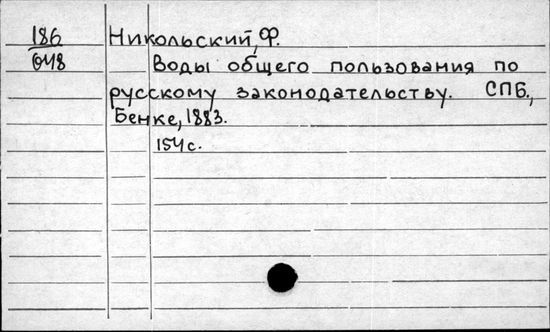 186 Никольский, Ф.
648 Воды общего пользования по
русскому законодательству. СПБ.,
Бенке, 1883.
154 с.